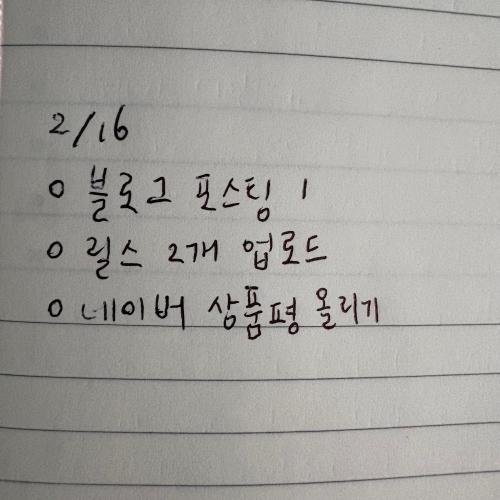 2/16
o 블로그 포스팅 1
o 릴스 2개 업로드
o 네이버 상품평 올리기